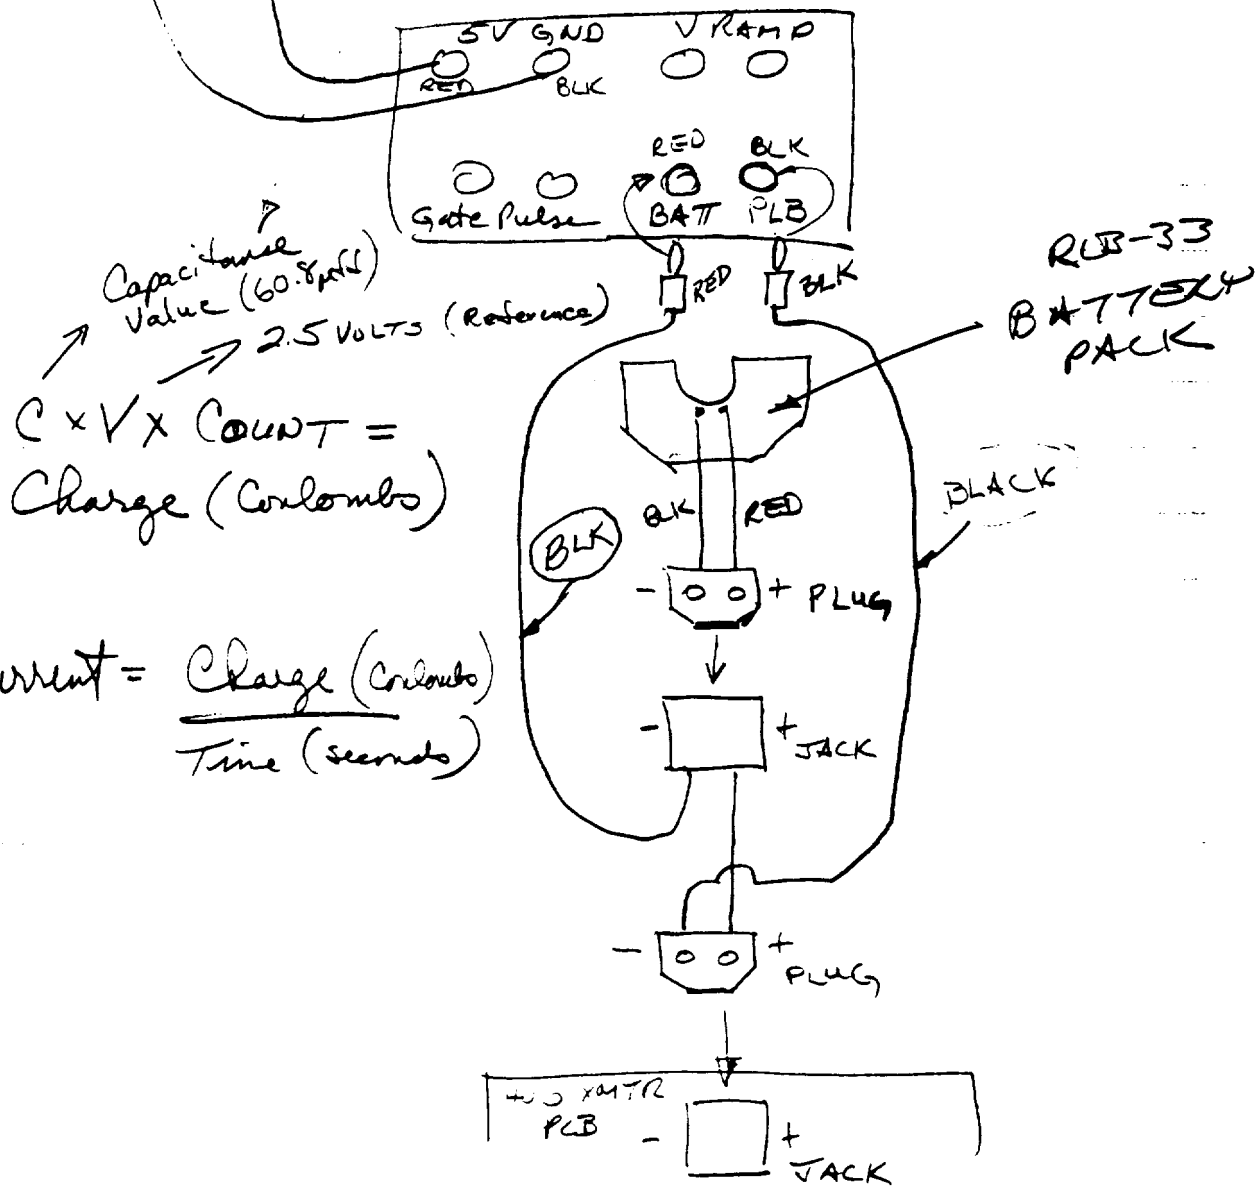 5V GND V RAMP
RED BLK
RED BLK
Gate Pulse BATT PLB
RED BLK
Capacitance
Value (60.8μfd)
2.5 VOLTS (Reference)
RLB-33
BATTERY
PACK
C x V x COUNT =
Charge (Coulombs)
BLK RED
BLACK
BLK
- + PLUG
urrent = Charge (Coulombs)
Time (seconds)
- + JACK
- + PLUG
XMTR
PCB
- + JACK